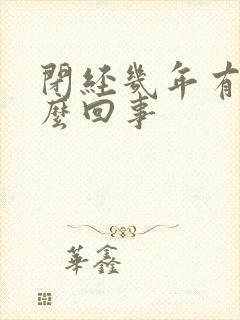 閉經幾年有
麼回事
華鑫